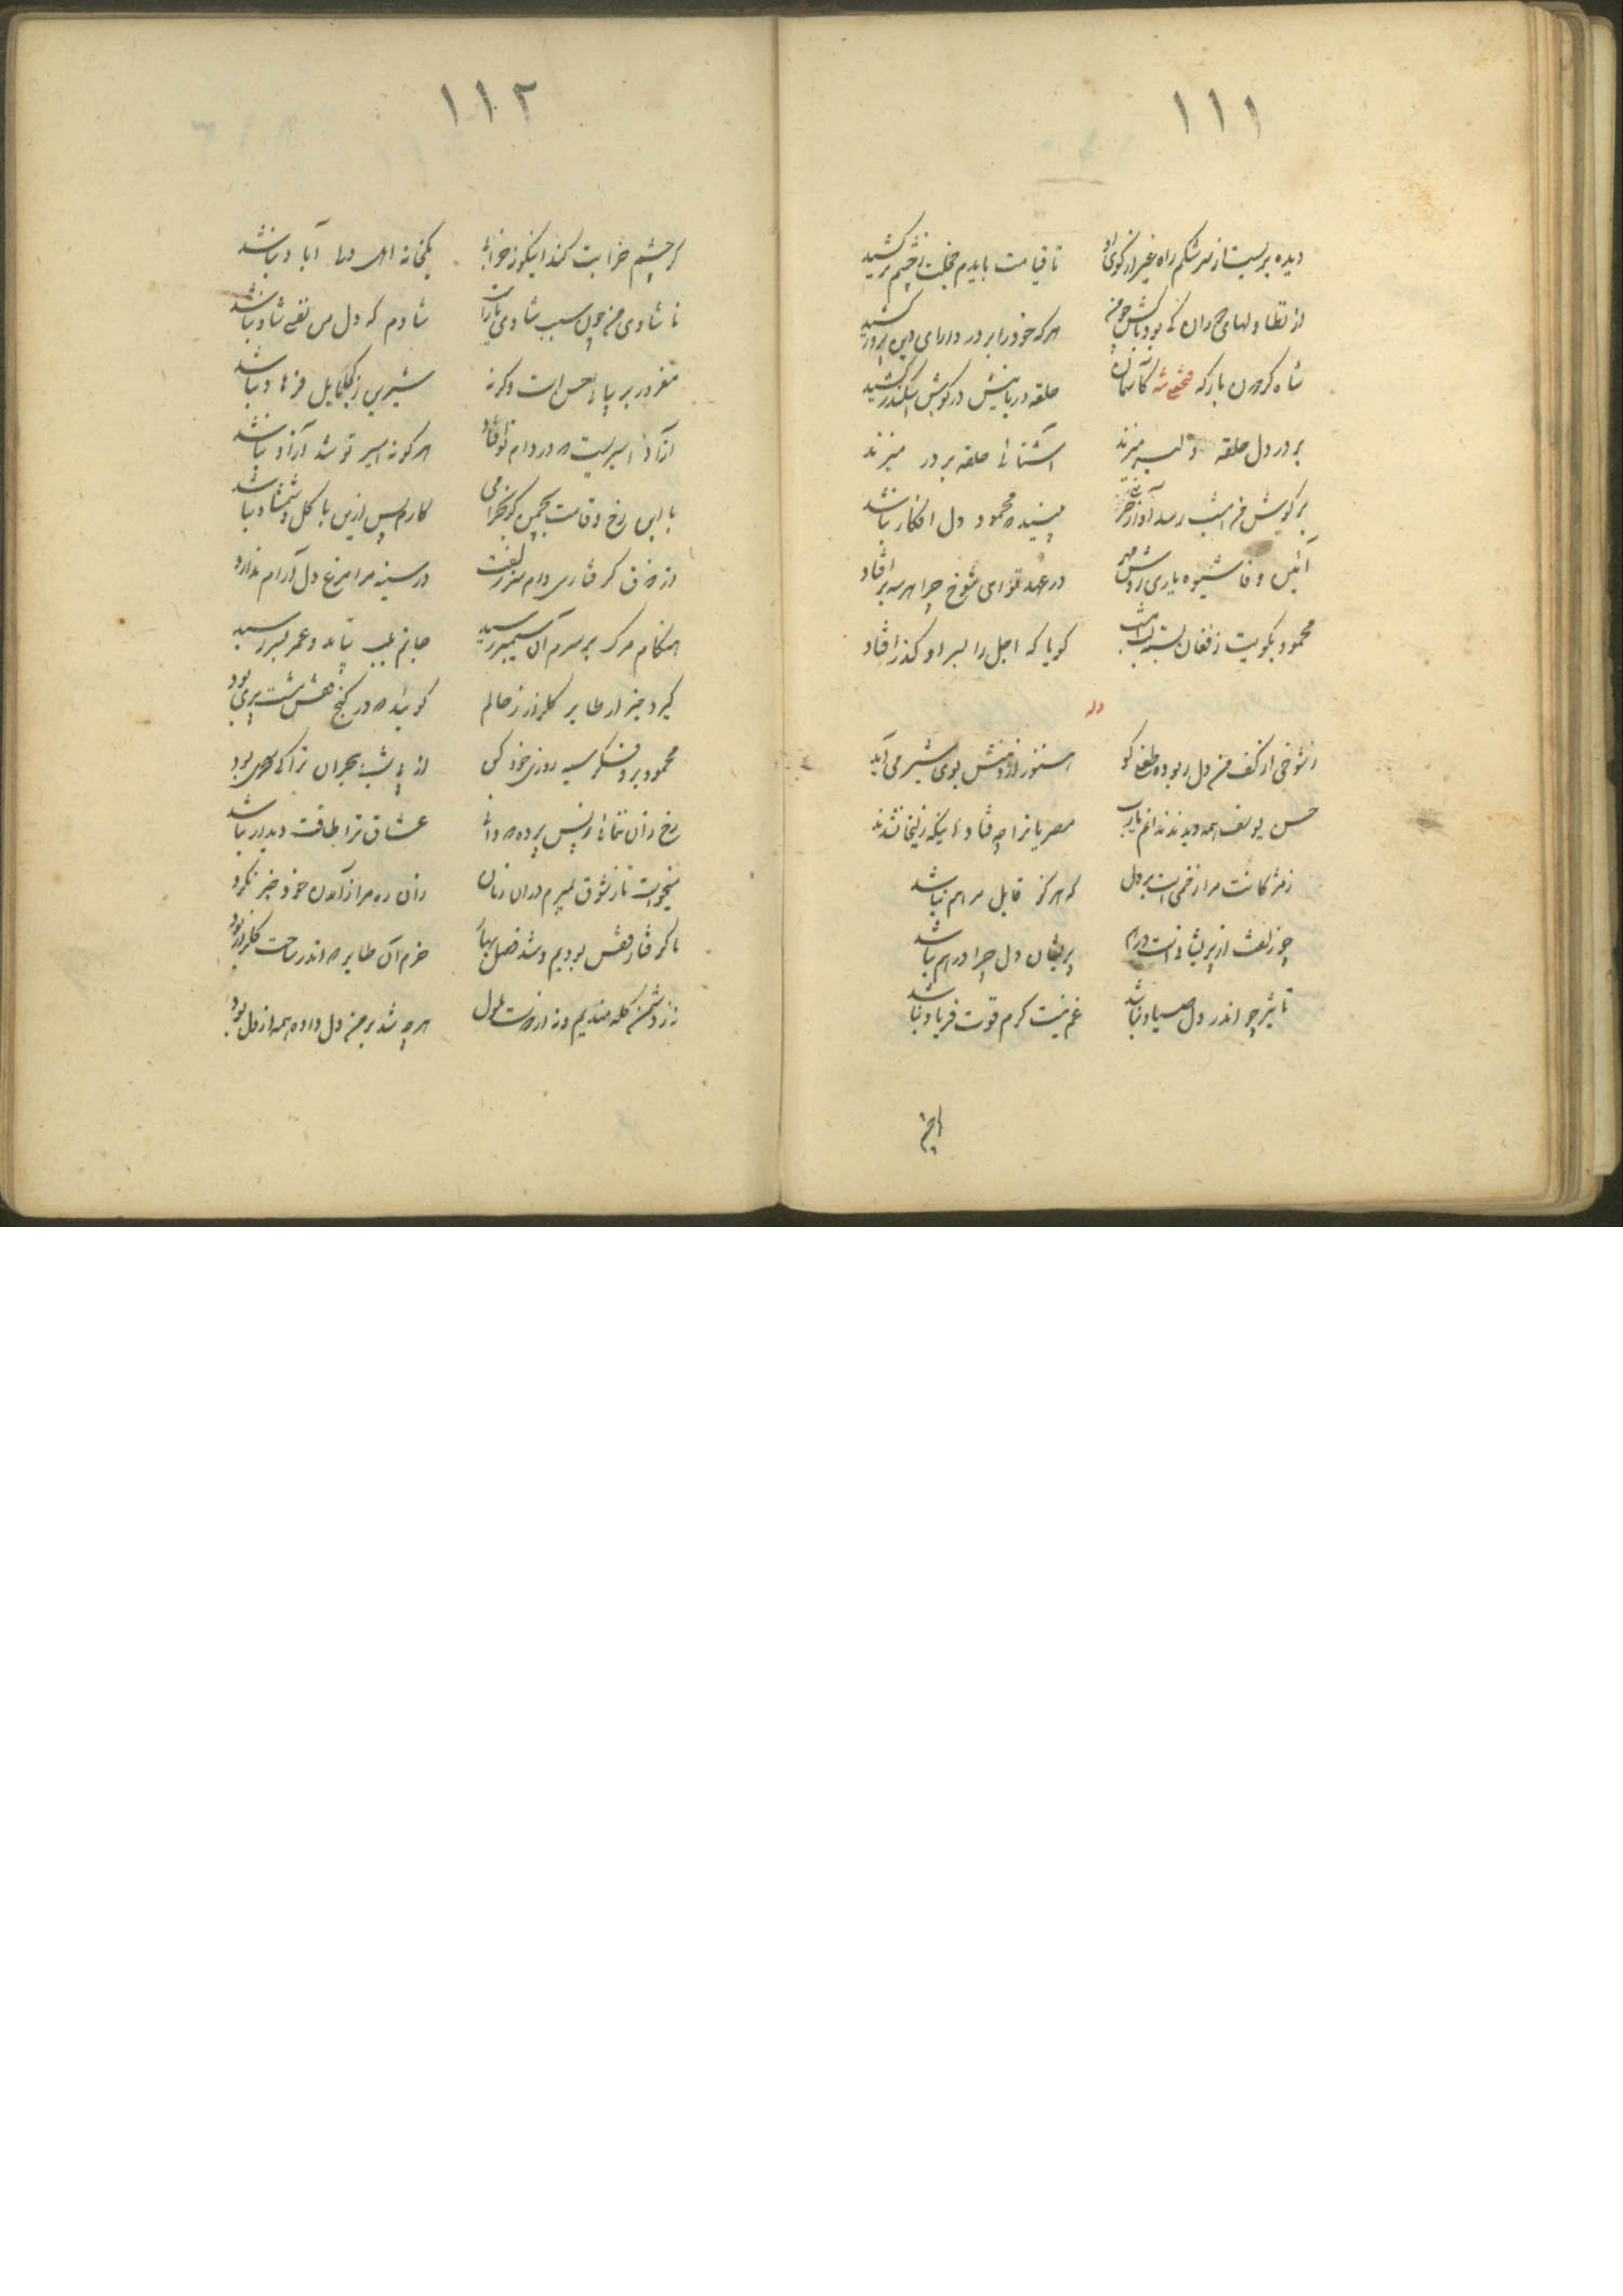 ۱۱۱
دیده بربست از سرشکم راه غیر از کوی او تا قیامت بایدم خجلت ز چشم تر کشید
از تطاولهای دوران کی بود باکش هر که خود را بر در دارای دین پرور کشید
شاه کردون بارکه فتحعلی شه کاسمان حلقه دربانیش در کوش اسکندر کشید
بر در دل حلقه میزند آشنائی حلقه بر در میزند
بر کویش امشب رسد آواز محمود دل افکار نباشد
آئین وفا شیوه یاری روش مهر در عهد تو ای شوخ چرا بر افتاد
محمود بکویت ز فغان بسته لب امشب کویا که اجل را بسر او کذر افتاد
وله
ز شوخی از کف من دل ربوده طفلی کو هنوز از دهنش بوی شیر می آید
حسن یوسف همه دیدند ندانم یارب مصریانرا چه فتاد اینکه زلیخا نشدند
ز مژکانت مرا زخمی است بر دل که هرکز قابل مرهم نباشد
چو زلفت از پریشانانست پریشان دل چرا درهم نباشد
تاثیر چو اندر دل صیاد نباشد غم نیست کرم قوت فریاد نباشد
۱۱۲
کر چشم خرابت کند اینکونه خرابی یکخانه آباد نباشد
ناشادی من چون سبب شادی یار است شادم که دل من نفسی شاد نباشد
مغرور حسن است وکرنه شیرین ز چه مایل فرهاد نباشد
آزاد اسیریست که در دام تو افتاد هرکو نه اسیر تو شد آزاد نباشد
با این رخ و قامت بچمن کر بخرامی کارم پس ازین با کل و شمشاد نباشد
از ذوق کرفتاری دام سر زلفت در سینه مرا مرغ دل آرام ندارد
هنکام مرک بر سرم آن سیمبر رسید جانم بلب نیامد و عمرم بسر رسید
کیرد خبر از طایر کلزار ز حالم کوئید که در کنج قفس مشت پری بود
محمود برو فکر سیه روزی خود کن از پی شب هجران ترا کی سحری بود
رخ زان ننمائی و پس پرده عشاق ترا طاقت دیدار نباشد
میخواست تا ز شوق نمیرم در آن زمان زان ره مرا ز آمدن خود خبر نکرد
ما کرفتار قفس بودیم و شد فصل بهار خرم آن طایر که اندر ساحت کلزار بود
نز دشمن کله مندیم و نه از دوست ملول هر چه شد بر من دل داده همه از دل بود